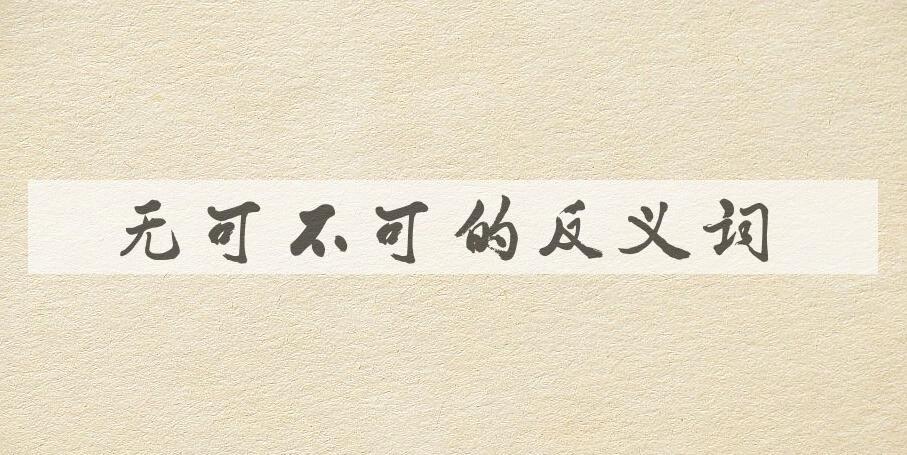 无可不可的反义词